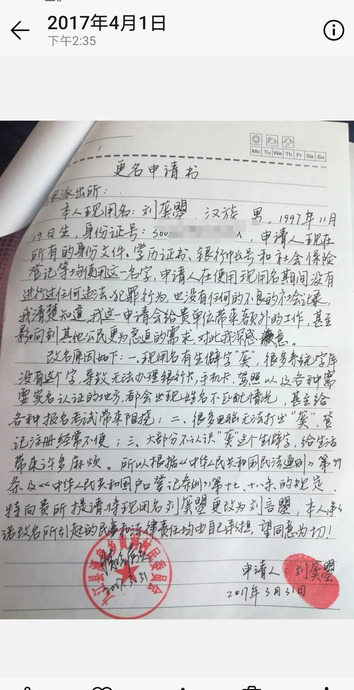 2017年4月1日
下午2:35
Mo Tu We Th Fr Sa Su
更名申请书
派出所：
本人现用名：刘 曌，汉族，男，1997年11月
19日生，身份证号：500 ，申请人现在
所有的身份文件、学历证书、银行卡号和社会保险
登记等均使用这一名字，申请人在使用现用名期间没有
进行过任何违法犯罪行为，也没有任何的不良的社会记录，
我清楚知道，我这一申请会给贵单位带来额外的工作，甚至
影响到其他公民更为急迫的需求，对此我深感 意。
改名原因如下：一、现用名有生僻字“ ”，很多系统字库
没有这个字，导致无法办理银行卡，手机卡，驾照以及各种需
要实名认证的地方，都会出现姓名不匹配情况，甚至给
各种报名考试带来阻挠；二、很多电脑无法打出“ ”，登
记注册经常不便；三、大部分不认识“ ”这个生僻字，给生活
带来许多麻烦。所以根据《中华人民共和国民法通则》第99
条及《中华人民共和国户口登记条例》第十七、十八条的规定，
特向贵所提请将现用名刘 曌更改为刘言曌，本人承
诺改名所引起的民事和法律责任均由自己承担，望同意为切！
申请人：刘 曌
2017年3月31日
2017.3.31